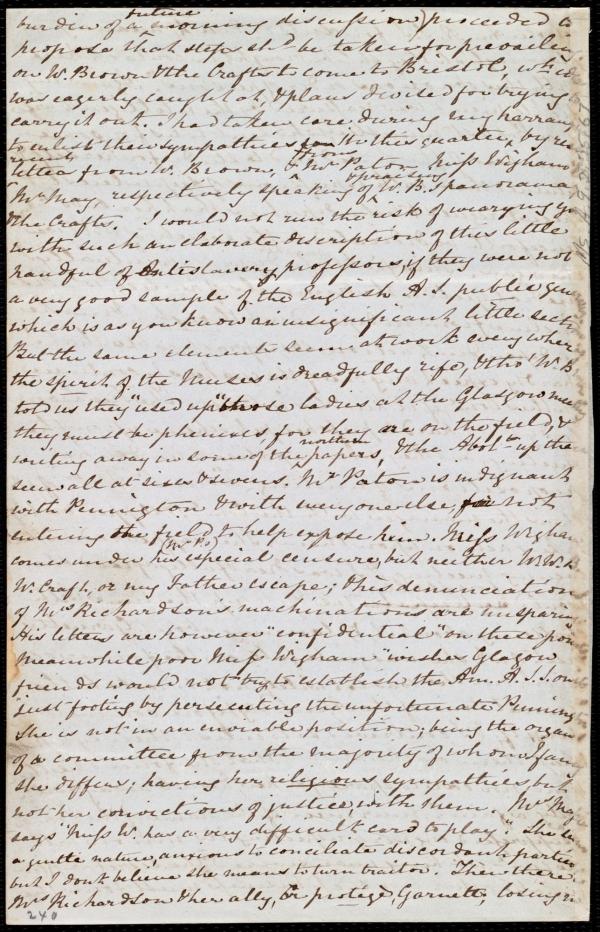 burden of a future morning discussion) proceeded to
propose that steps shd be taken for prevailing
on W. Brown & the Crafts to come to Bristol, wh.
was eagerly caught at, & plans devised for trying
carry it out. I had taken care during my harrang
to enlist their sympathies in this quarter, by re
recent letter from W. Brown, & from Mr Paton Miss Wigham
Mr May, respectively speaking of & praising W. B.'s panorama
& the Crafts. I would not run the risk of wearying yo
with such an elaborate description of this little
handful of Antislavery professors, if they were not
a very good sample of the English A.S. public gen
which is as you know an insignificant little sect
But the same elements seem at work every where
the spirit of the Nurses is dreadfully rife, & tho' W. B
told us they "used up" those ladies at the Glasgow mee
they must be phenixes, for they are on the field, &
writing away in some of the northern papers, & the Abolts up the
seem all at sixes & sevens. Mr Paton is indignant
with Pennington & with everyone else, for not
entering the field to help expose him. Miss Wigham
comes under his (Mr P's) especial censure, but neither W. W. B
W. Craft, or my Father escape; & his denunciations
of Mrs Richardson's machinations are unsparing
His letters are however "confidential" on these poin
Meanwhile poor Miss Wigham "wishes Glasgow
friends would not try to establish the Am. A. S. S. on
just footing by persecuting the unfortunate Pennington
She is not in an enviable position; being the organ
of a committee from the majority of whom I fancy
she differs; having her religious sympathies but
not her convictions of justice with them. Mr May
says "Miss W. has a very difficult card to play". She has
a gentle nature, anxious to conciliate discordant parties
but I don't believe she means to turn traitor. Then there
Mrs Richardson & her ally, & protégé, Garnett, losing
240